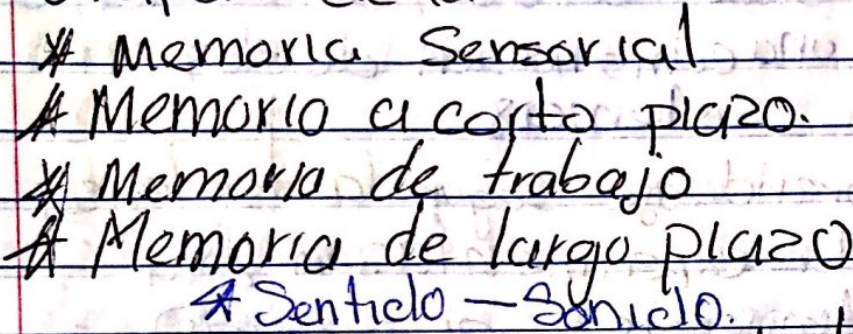 * Memoria Sensorial
* Memoria a corto plazo.
* Memoria de trabajo
* Memoria de largo plazo
* Sentido — Sonido.